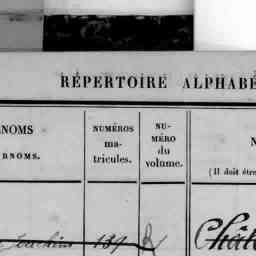 RÉPERTOIRE ALPHABÉ
NOMS
RNOMS.
NUMÉROS
ma-
tricules.
NU-
MÉRO
du
volume.
N
(Il doit être
139
Chât